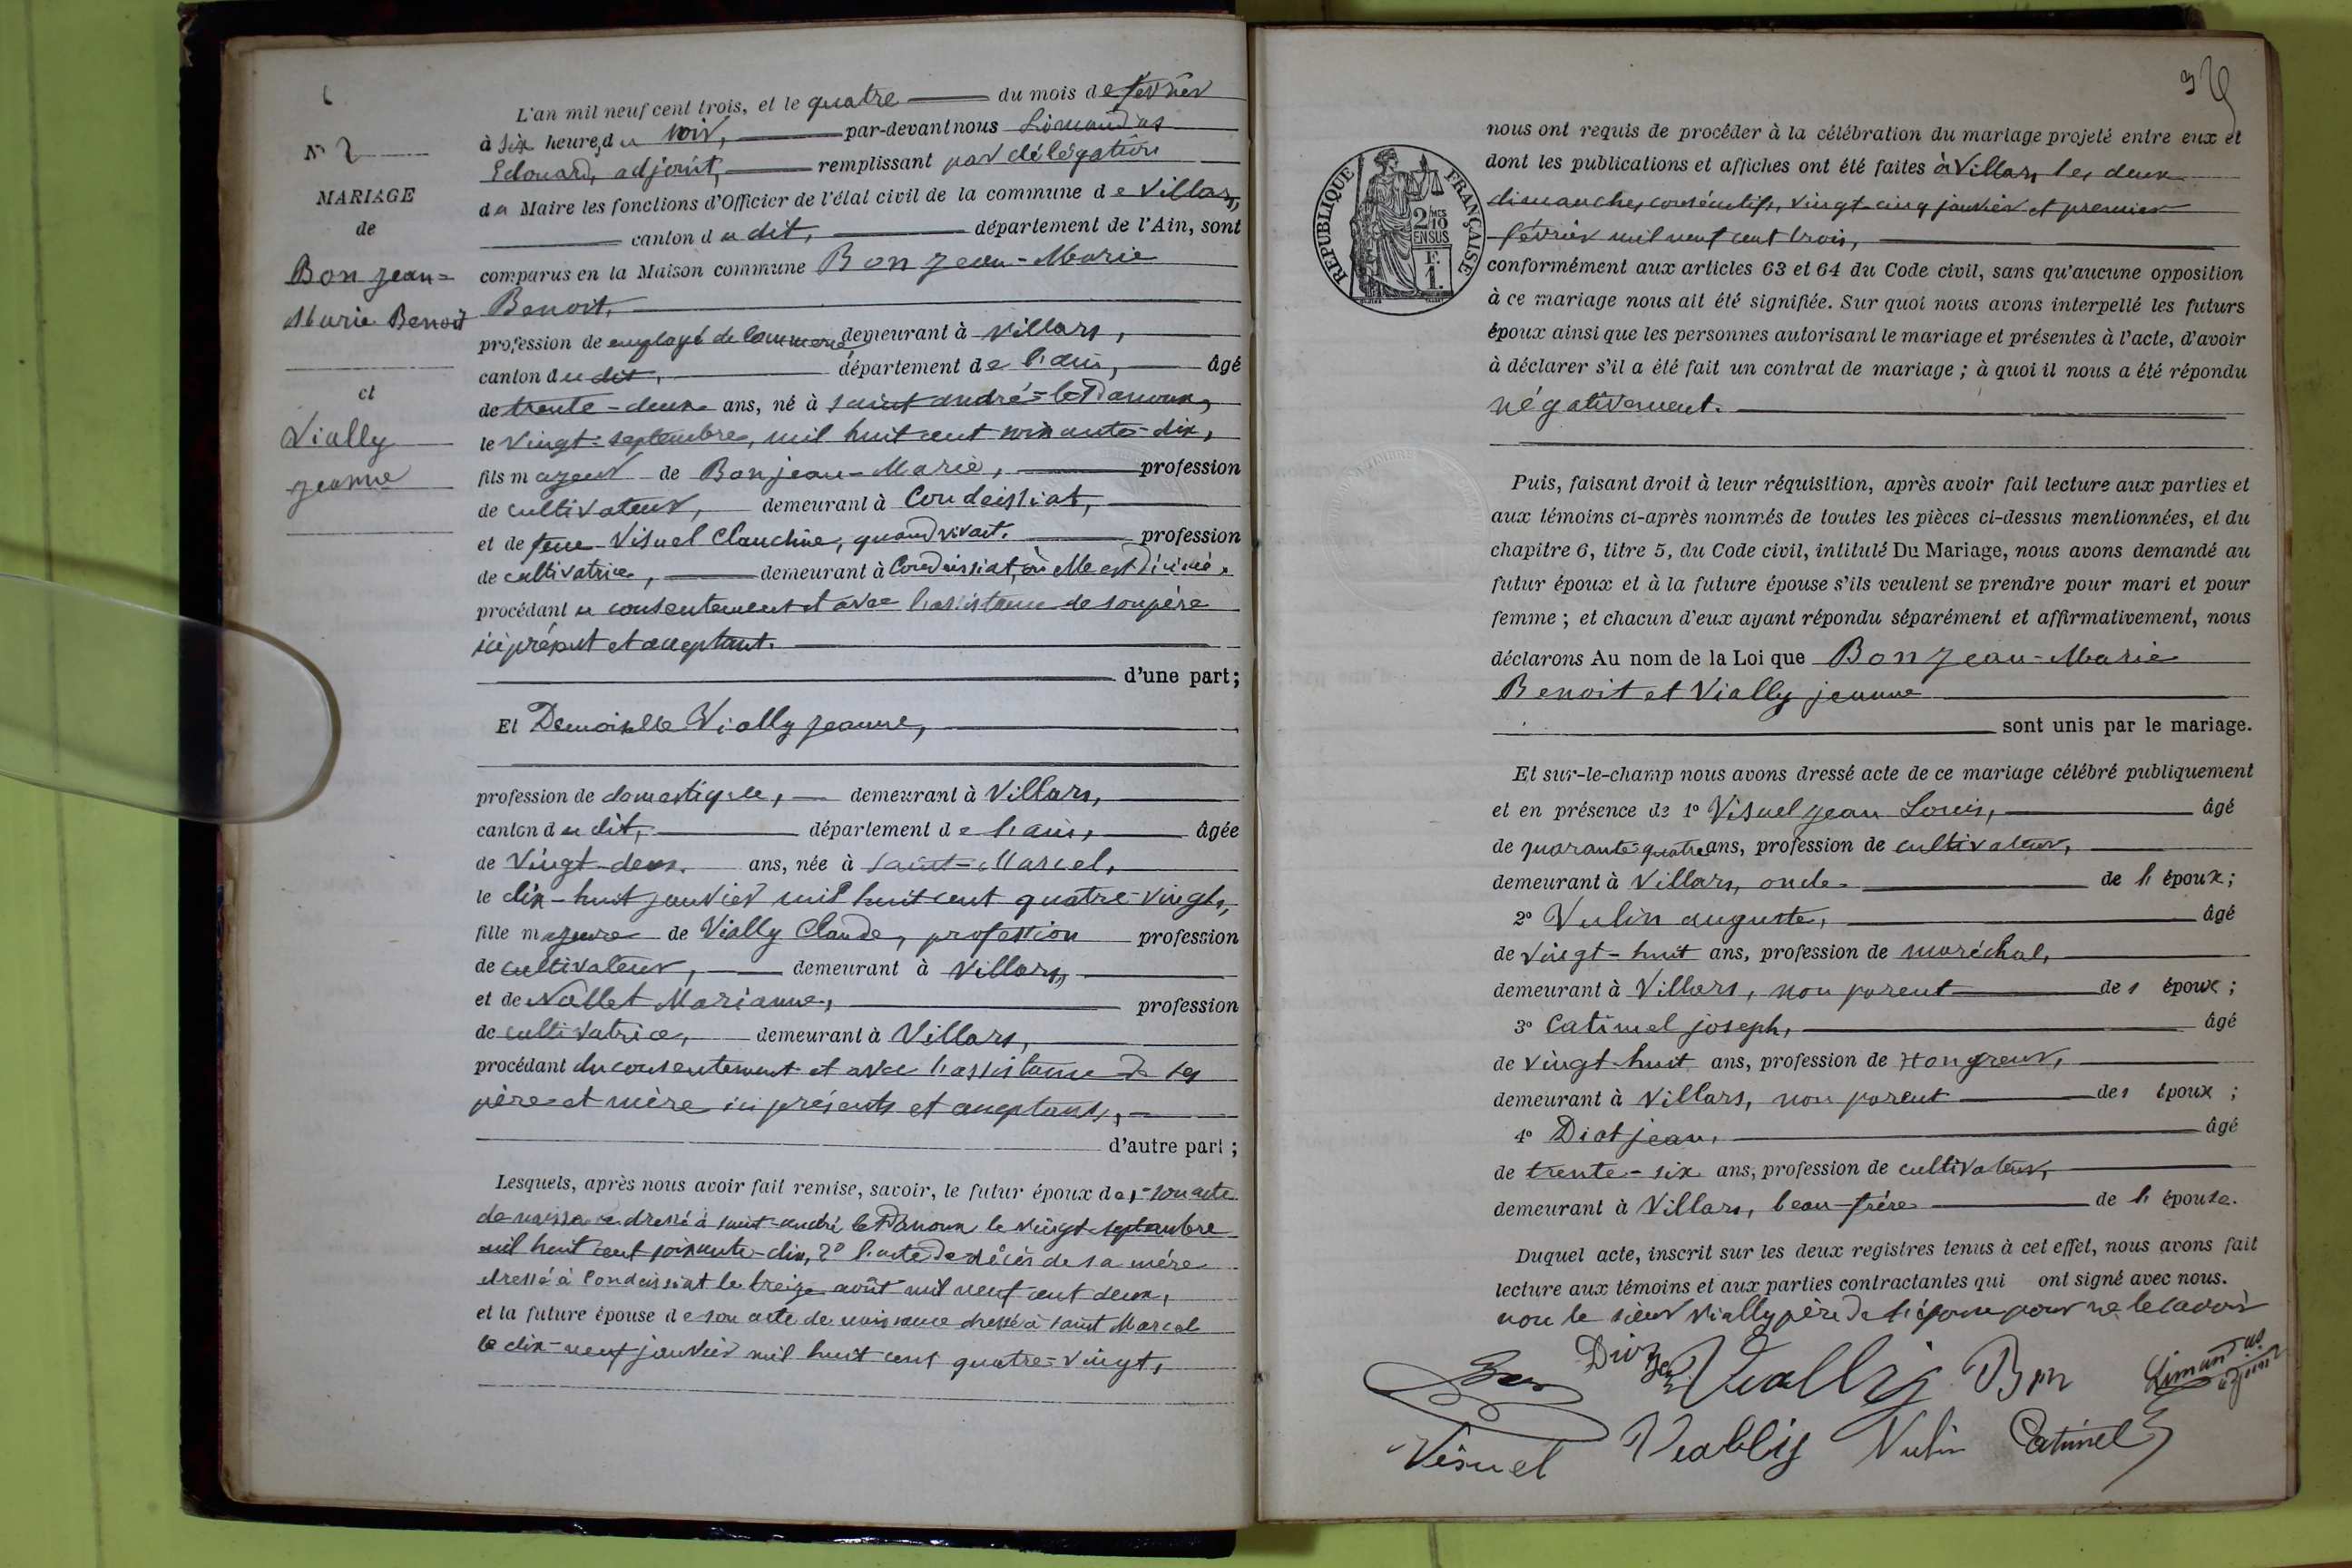 N° 2
MARIAGE
de
Bon Jean=
Marie Benoit
et
Vially
Jeanne
L'an mil neuf cent trois, et le quatre du mois de février
à six heures du soir, par-devant nous Limandas
Edouard, adjoint, remplissant par délégation
du Maire les fonctions d'Officier de l'état civil de la commune de Villars,
canton du dit, département de l'Ain, sont
comparus en la Maison commune Bon Jean-Marie
Benoit,
profession de employé de commerce, demeurant à Villars,
canton du dit, département de l'ain, âgé
de trente-deux ans, né à saint andré-le-Panoux,
le vingt septembre, mil huit cent soixante-dix,
fils majeur de Bon jean-Marie, profession
de cultivateur, demeurant à Condeissiat,
et de feue Visuel Claudine, quand vivait, profession
de cultivatrice, demeurant à Condeissiat, où elle est décédée,
procédant du consentement et avec l'assistance de son père
ici présent et acceptant.
d'une part;
Et Demoiselle Vially Jeanne,
profession de domestique, demeurant à Villars,
canton du dit, département de l'ain, âgée
de vingt-deux ans, née à Saint-Marcel,
le dix-huit janvier mil huit cent quatre-vingts,
fille majeure de Vially Claude, profession profession
de cultivateur, demeurant à Villars,
et de Nallet Marianne, profession
de cultivatrice, demeurant à Villars,
procédant du consentement et avec l'assistance de ses
père et mère ici présents et acceptants,
d'autre part;
Lesquels, après nous avoir fait remise, savoir, le futur époux de 1° son acte
de naissance dressé à saint-andré le Panoux le vingt septembre
mil huit cent soixante-dix, 2° l'acte de décès de sa mère
dressé à Condeissiat le treize août mil neuf cent deux,
et la future épouse de son acte de naissance dressé à saint Marcel
le dix-neuf janvier mil huit cent quatre-vingt,
RÉPUBLIQUE FRANÇAISE
2/10 MES
EN SUS
F.
1.
nous ont requis de procéder à la célébration du mariage projeté entre eux et
dont les publications et affiches ont été faites à Villars les deux
dimanches consécutifs, vingt-cinq janvier et premier
février mil neuf cent trois,
conformément aux articles 63 et 64 du Code civil, sans qu'aucune opposition
à ce mariage nous ait été signifiée. Sur quoi nous avons interpellé les futurs
époux ainsi que les personnes autorisant le mariage et présentes à l'acte, d'avoir
à déclarer s'il a été fait un contrat de mariage; à quoi il nous a été répondu
négativement.
Puis, faisant droit à leur réquisition, après avoir fait lecture aux parties et
aux témoins ci-après nommés de toutes les pièces ci-dessus mentionnées, et du
chapitre 6, titre 5, du Code civil, intitulé Du Mariage, nous avons demandé au
futur époux et à la future épouse s'ils veulent se prendre pour mari et pour
femme; et chacun d'eux ayant répondu séparément et affirmativement, nous
déclarons Au nom de la Loi que Bon Jean-Marie
Benoit et Vially jeanne
sont unis par le mariage.
Et sur-le-champ nous avons dressé acte de ce mariage célébré publiquement
et en présence de 1° Visuel Jean Louis, âgé
de quarante-quatre ans, profession de cultivateur,
demeurant à Villars, oncle de l'époux;
2° Vulin auguste, âgé
de vingt-huit ans, profession de maréchal,
demeurant à Villars, non parent des époux;
3° Catimel joseph, âgé
de vingt-huit ans, profession de Hongreur,
demeurant à Villars, non parent des époux;
4° Diot jean, âgé
de trente-six ans, profession de cultivateur,
demeurant à Villars, beau-frère de l'épouse.
Duquel acte, inscrit sur les deux registres tenus à cet effet, nous avons fait
lecture aux témoins et aux parties contractantes qui ont signé avec nous.
non le sieur Vially père de l'épouse pour ne le savoir
Bon Diot Jean Vially Bon Limandas adjoint
Visuel Vially Vulin Catimel